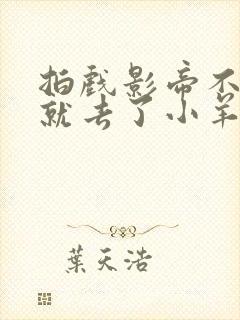 拍戏影帝不
就去了小羊
葉天浩